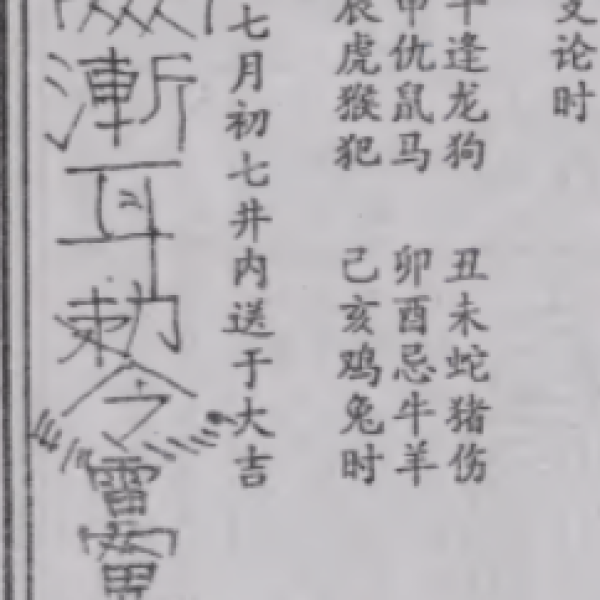 论时
午逢龙狗 丑未蛇猪伤
申仇鼠马 卯酉忌牛羊
辰虎猴犯 己亥鸡兔时
七月初七井内送于大吉
漸耳勅令雷